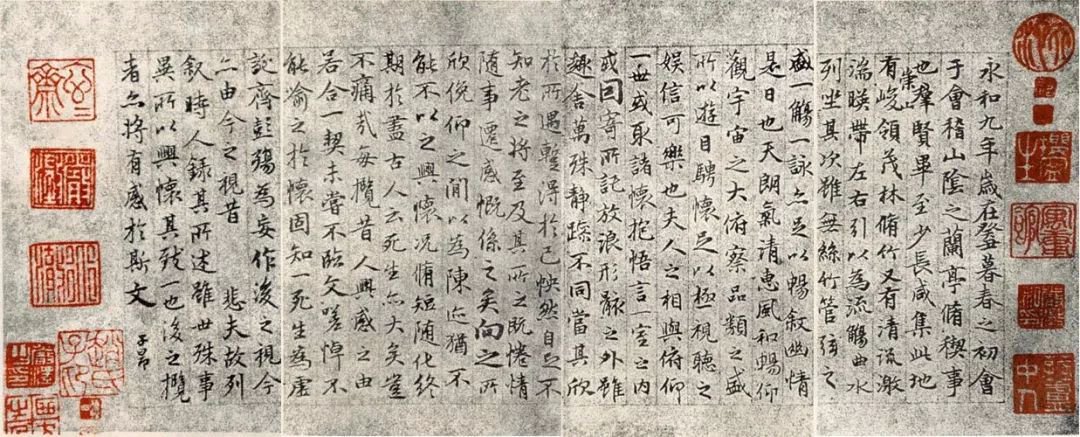 永和九年歲在癸丑暮春之初會
于會稽山陰之蘭亭脩禊事
也羣賢畢至少長咸集此地
有崇山峻領茂林脩竹又有清流激
湍暎帶左右引以為流觴曲水
列坐其次雖無絲竹管弦之
盛一觴一詠亦足以暢敘幽情
是日也天朗氣清惠風和暢仰
觀宇宙之大俯察品類之盛
所以遊目騁懷足以極視聽之
娛信可樂也夫人之相與俯仰
一世或取諸懷抱悟言一室之內
或因寄所託放浪形骸之外雖
趣舍萬殊靜躁不同當其欣
於所遇蹔得於己怏然自足不
知老之將至及其所之既惓情
隨事遷感慨係之矣向之所
欣俛仰之閒以為陳迹猶不
能不以之興懷況脩短隨化終
期於盡古人云死生亦大矣豈
不痛哉每攬昔人興感之由
若合一契未嘗不臨文嗟悼不
能喻之於懷固知一死生為虛
誕齊彭殤為妄作後之視今
亦由今之視昔 悲夫故列
敘時人錄其所述雖世殊事
異所以興懷其致一也後之攬
者亦將有感於斯文
子昂